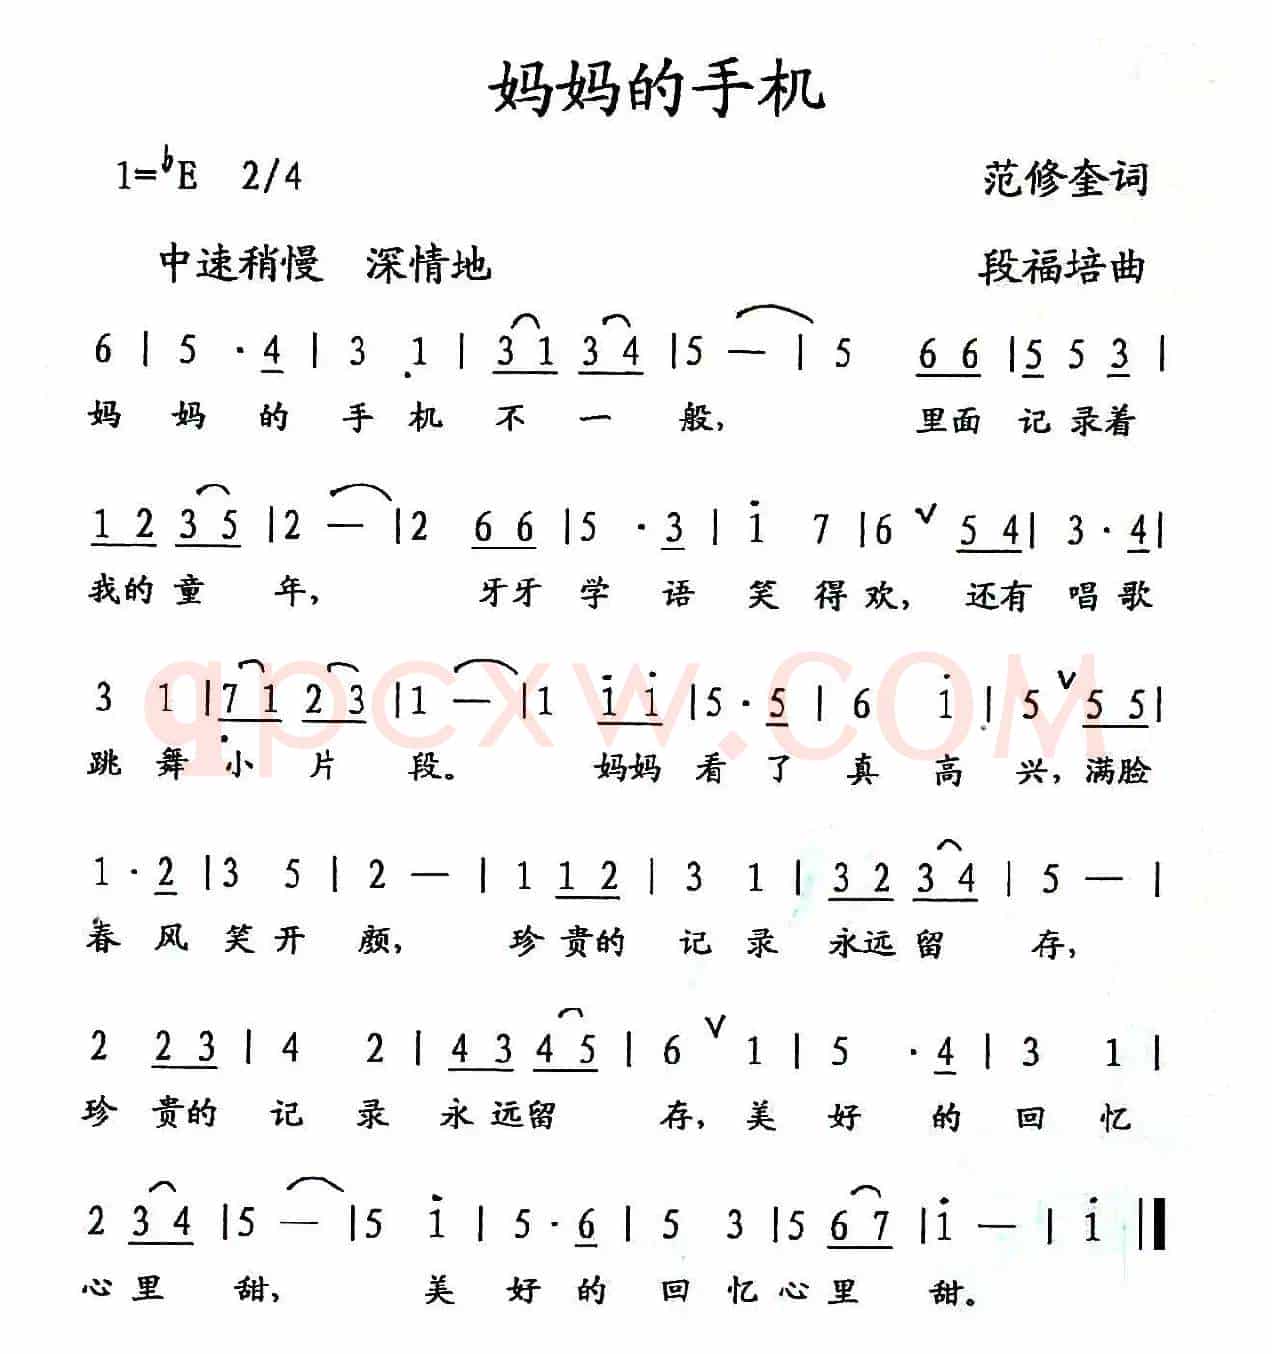 妈妈的手机
1=♭E 2/4 范修奎词
中速稍慢 深情地 段福培曲
6 | 5 · 4 | 3 1 | 3 1 3 4 | 5 — | 5 6 6 | 5 5 3 |
妈 妈 的 手 机 不 一 般, 里面 记 录着
1 2 3 5 | 2 — | 2 6 6 | 5 · 3 | i 7 | 6 ∨ 5 4 | 3 · 4 |
我的 童 年, 牙牙 学 语 笑 得 欢, 还有 唱 歌
3 1 | 7 1 2 3 | 1 — | 1 i i | 5 · 5 | 6 i | 5 ∨ 5 5 |
跳 舞 小 片 段。 妈妈 看 了 真 高 兴, 满脸
1 · 2 | 3 5 | 2 — | 1 1 2 | 3 1 | 3 2 3 4 | 5 — |
春 风 笑 开 颜, 珍 贵的 记 录 永远 留 存,
2 2 3 | 4 2 | 4 3 4 5 | 6 ∨ 1 | 5 · 4 | 3 1 |
珍 贵的 记 录 永 远留 存, 美 好 的 回 忆
2 3 4 | 5 — | 5 i | 5 · 6 | 5 3 | 5 6 7 | i — | i ‖
心 里 甜, 美 好 的 回 忆 心 里 甜。
qpcxw.COM